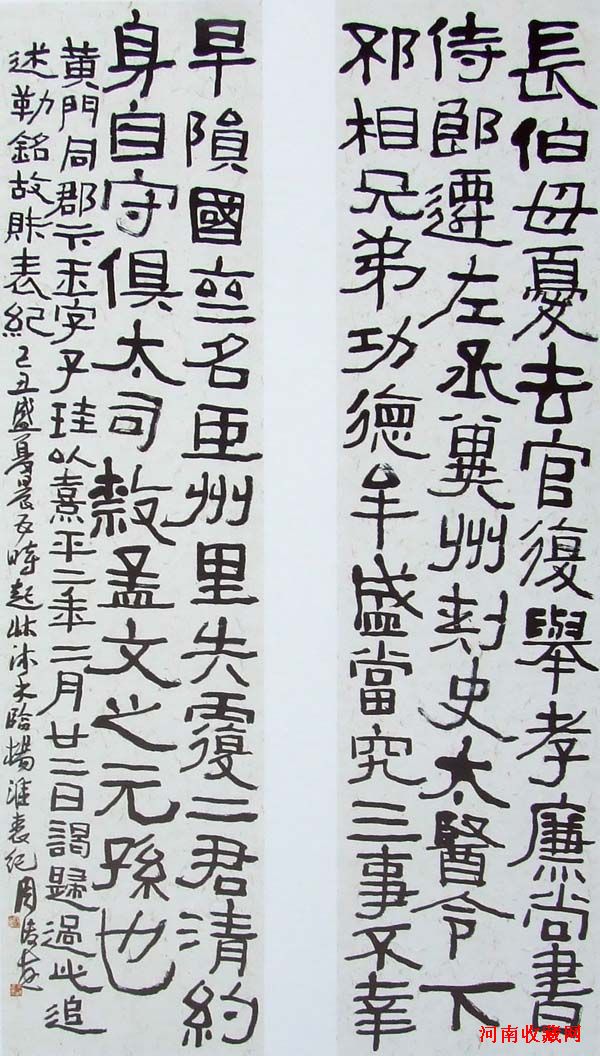 長伯母憂去官復舉孝廉尚書
侍郎遷左丞冀州刺史太醫令下
邳相兄弟功德牟盛當究三事不幸
早隕國喪名臣州里失覆二君清約
身自守俱大司隸孟文之元孫也
黃門同郡卞玉字子珪以熹平二年二月廿二日謁歸過此追
述勒銘故財表紀 己丑盛夏晨五時起牀沐手臨楊淮表紀 周
河南收藏网